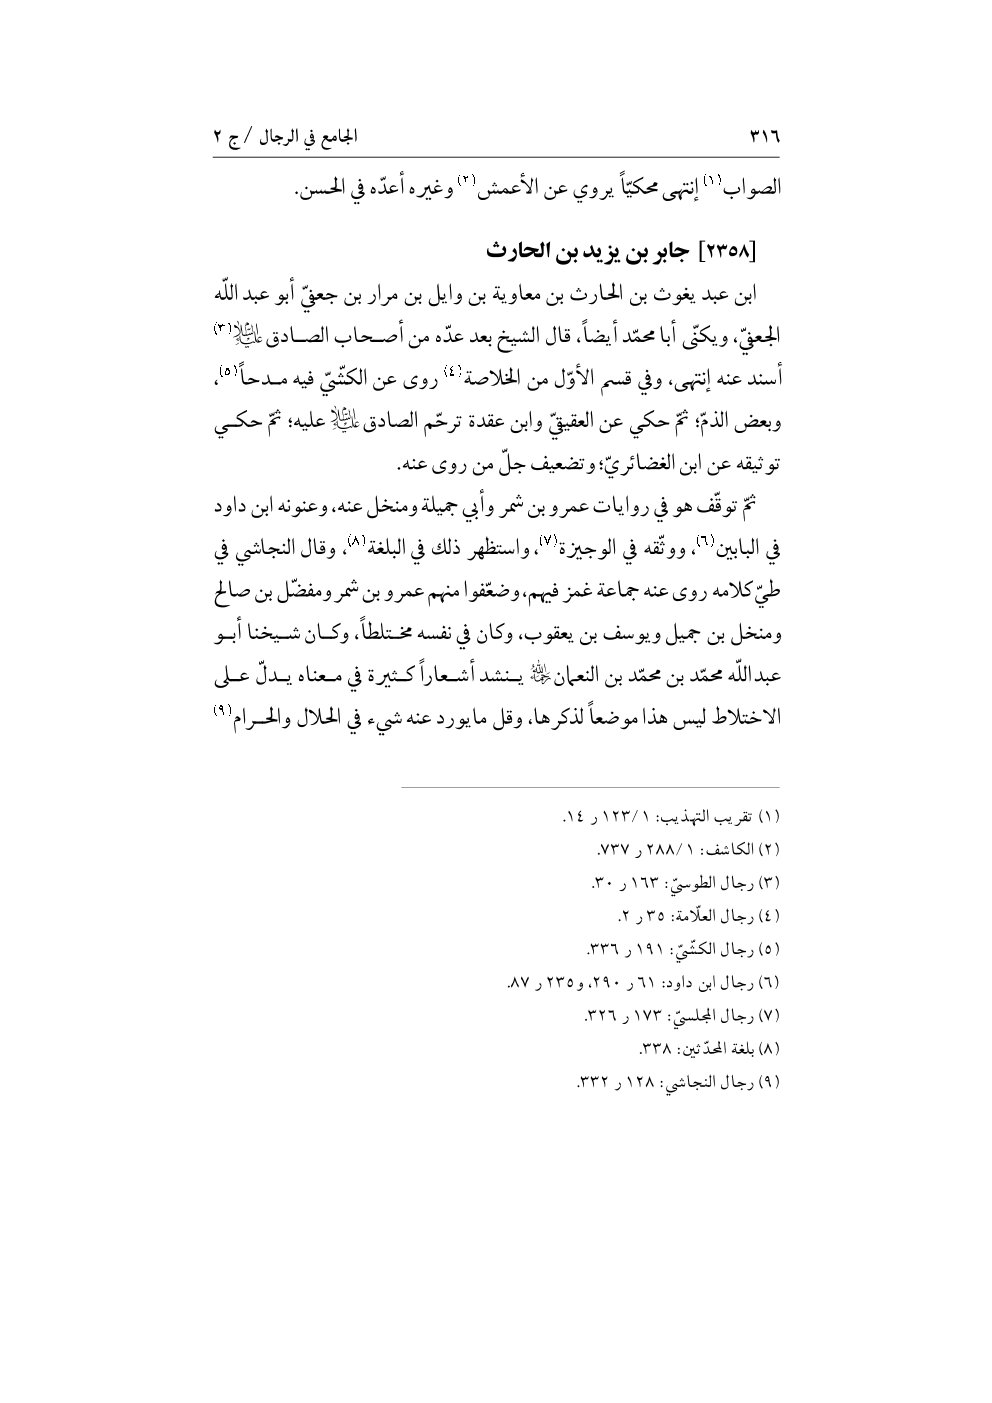 ٣١٦ الجامع في الرجال / ج ٢
الصواب(١) إنتهى محكيّاً يروي عن الأعمش(٢) وغيره أعدّه في الحسن.
[٢٣٥٨] جابر بن يزيد بن الحارث
ابن عبد يغوث بن الحارث بن معاوية بن وايل بن مرار بن جعفيّ أبو عبد اللّه
الجعفيّ، ويكنّى أبا محمّد أيضاً، قال الشيخ بعد عدّه من أصحاب الصادق عليه السلام(٣)
أسند عنه إنتهى، وفي قسم الأوّل من الخلاصة(٤) روى عن الكشّيّ فيه مدحاً(٥)،
وبعض الذمّ؛ ثمّ حكي عن العقيقيّ وابن عقدة ترحّم الصادق عليه السلام عليه؛ ثمّ حكي
توثيقه عن ابن الغضائريّ؛ وتضعيف جلّ من روى عنه.
ثمّ توقّف هو في روايات عمرو بن شمر وأبي جميلة ومنخل عنه، وعنونه ابن داود
في البابين(٦)، ووثّقه في الوجيزة(٧)، واستظهر ذلك في البلغة(٨)، وقال النجاشي في
طيّ كلامه روى عنه جماعة غمز فيهم، وضعّفوا منهم عمرو بن شمر ومفضّل بن صالح
ومنخل بن جميل ويوسف بن يعقوب، وكان في نفسه مختلطاً، وكان شيخنا أبو
عبداللّه محمّد بن محمّد بن النعمان رحمه الله ينشد أشعاراً كثيرة في معناه يدلّ على
الاختلاط ليس هذا موضعاً لذكرها، وقل مايورد عنه شيء في الحلال والحرام(٩)
(١) تقريب التهذيب: ١/ ١٢٣ ر ١٤.
(٢) الكاشف: ١/ ٢٨٨ ر ٧٣٧.
(٣) رجال الطوسيّ: ١٦٣ ر ٣٠.
(٤) رجال العلّامة: ٣٥ ر ٢.
(٥) رجال الكشّيّ: ١٩١ ر ٣٣٦.
(٦) رجال ابن داود: ٦١ ر ٢٩٠، و٢٣٥ ر ٨٧.
(٧) رجال المجلسيّ: ١٧٣ ر ٣٢٦.
(٨) بلغة المحدّثين: ٣٣٨.
(٩) رجال النجاشي: ١٢٨ ر ٣٣٢.